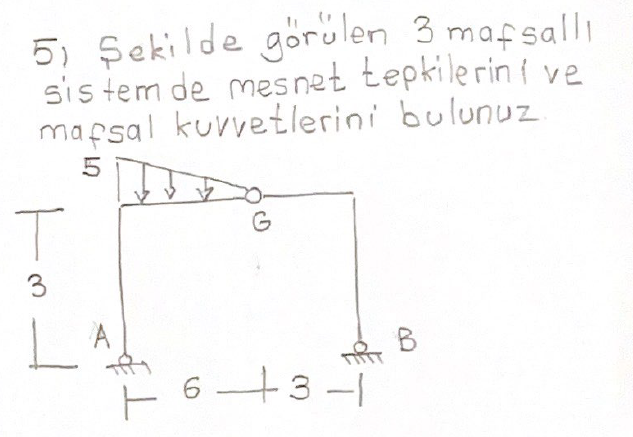 5) Şekilde görülen 3 mafsallı
sistemde mesnet tepkilerini ve
mafsal kuvvetlerini bulunuz.
5
G
3
A
B
6
3